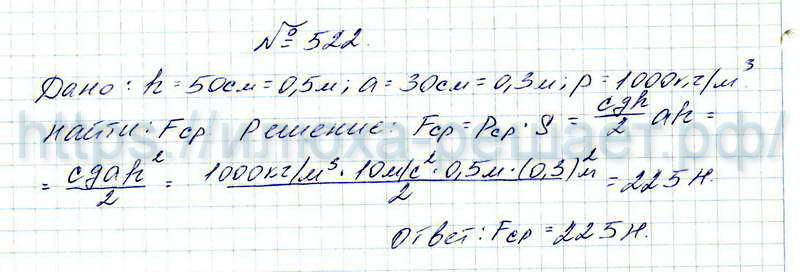 № 522.
Дано: h = 50см = 0,5м; a = 30см = 0,3м; ρ = 1000кг/м³.
Найти: Fср Решение: Fср = Pср · S = cgh/2 ah =
= cgah²/2 = 1000кг/м³ · 10м/с² · 0,5м · (0,3)²м/2 = 225Н.
Ответ: Fср = 225Н.
https://илюха-решает.рф/